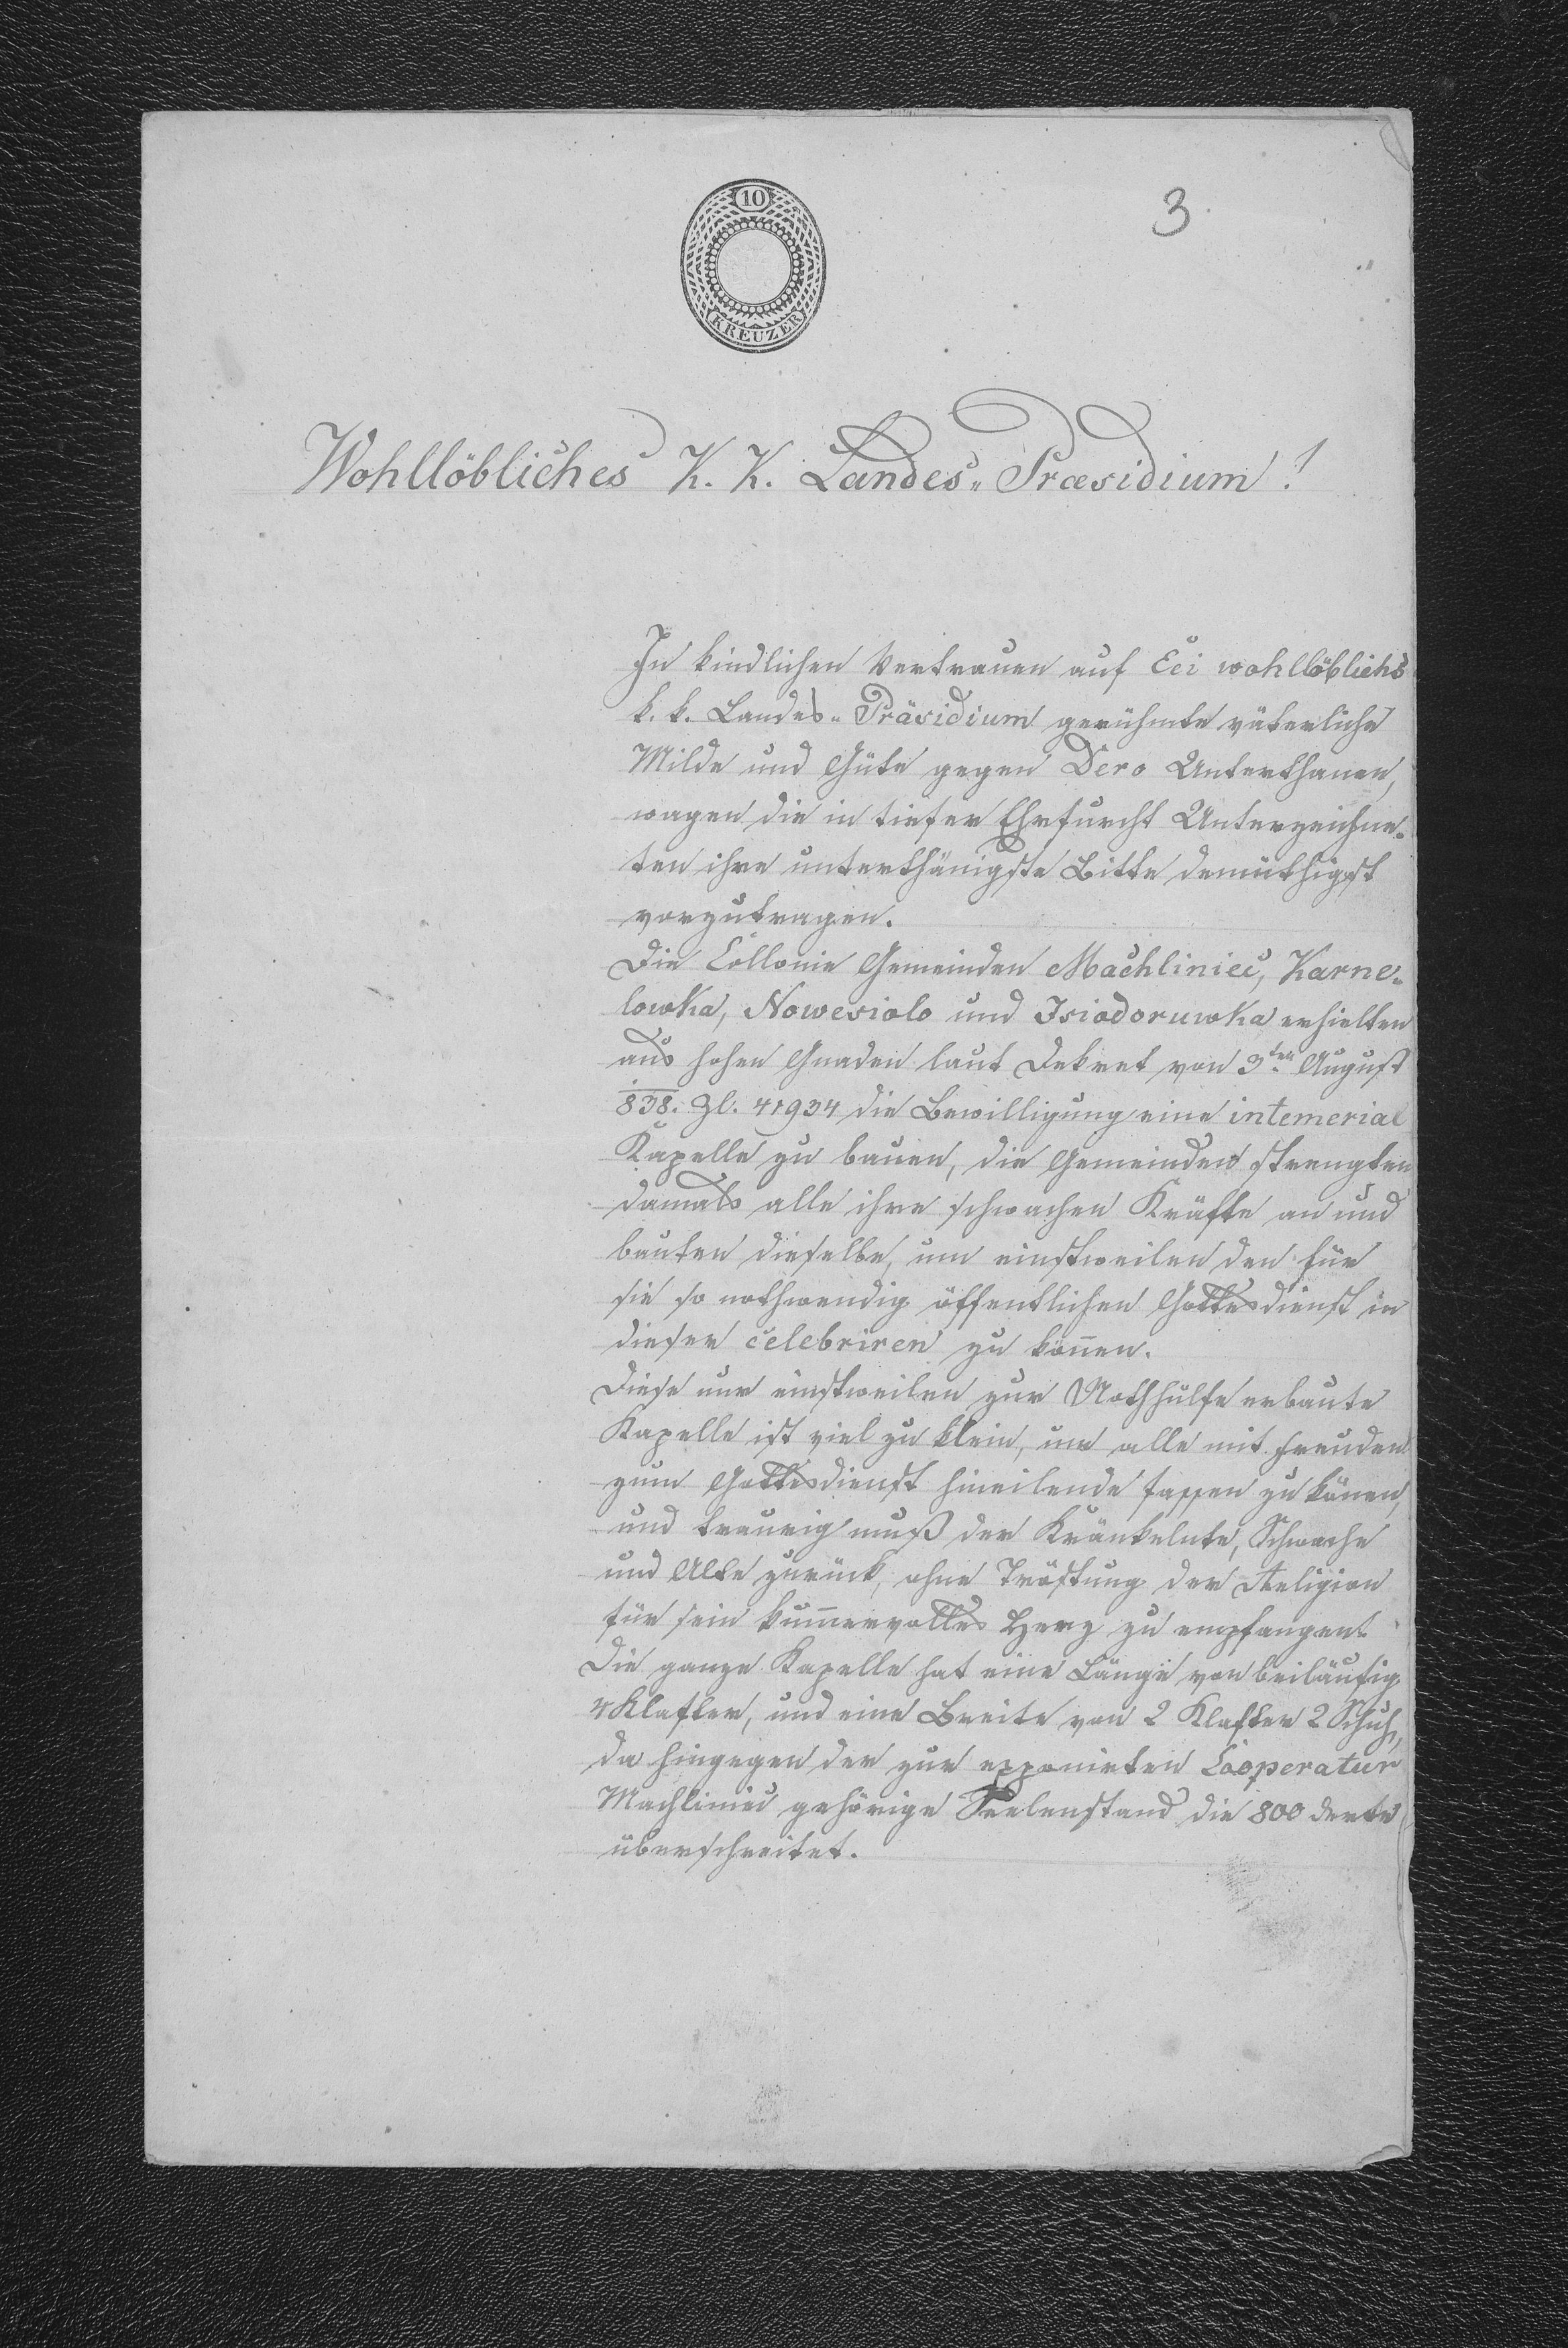 10
KREUZER
3
Wohllöbliches K. K. Landes„ Præsidium!
In kindlichen Vertrauen auf Eei wohllöblichs
k. k. Landes„ Präsidium gerühmte väterliche
Milde und Güte gegen Dero Unterthanen,
wagen die in tiefer Ehrfurcht Unterzeichne„
ten ihre unterthänigste Bitte demüthigst
vorzutragen.
Die Collonie Gemeinden Machliniec, Karne„
lowka, Nowesiolo und Isiodoruwka erhielten
aus hohen Gnaden laut Dekret von 3ten August
838. Zl. 41934 die Bewilligung eine intemerial
Kapelle zu bauen, die Gemeinden strengten
damals alle ihre schwachen Kräfte an und
bauten dieselbe, um einstweilen den für
sie so nothwendig öffentlichen Gottesdienst in
dieser celebriren zu kön̅en.
Diese nur einstweilen zur Nothhülfe erbaute
Kapelle ist viel zu klein, um alle mit Freuden
zum Gottesdienst hineilende fassen zu könen,
und traurig muß der Kränkelnte, Schwache
und Alte zurück, ohne Tröstung der Religion
für sein kum̅ervolles Herz zu empfangen.
Die ganze Kapelle hat eine Länge von beiläufig
4 Klafter, und eine Breite von 2 Klafter 2 Schuh,
da hingegen der zur exponirten Cooperatur
Machliniec gehörige Seelenstand die 800 derte
überschreitet.